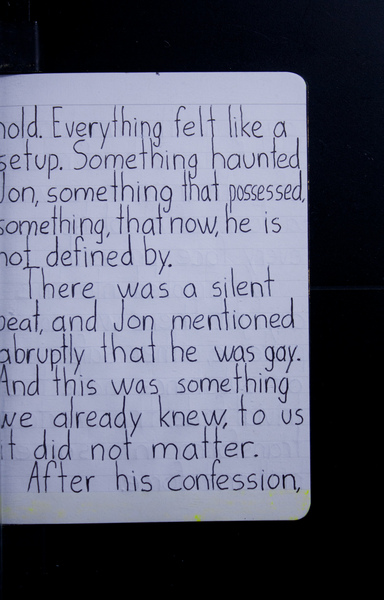 hold. Everything felt like a
setup. Something haunted
Jon, something that possessed,
something, that now, he is
not defined by.
There was a silent
beat, and Jon mentioned
abruptly that he was gay.
And this was something
we already knew, to us
it did not matter.
After his confession,